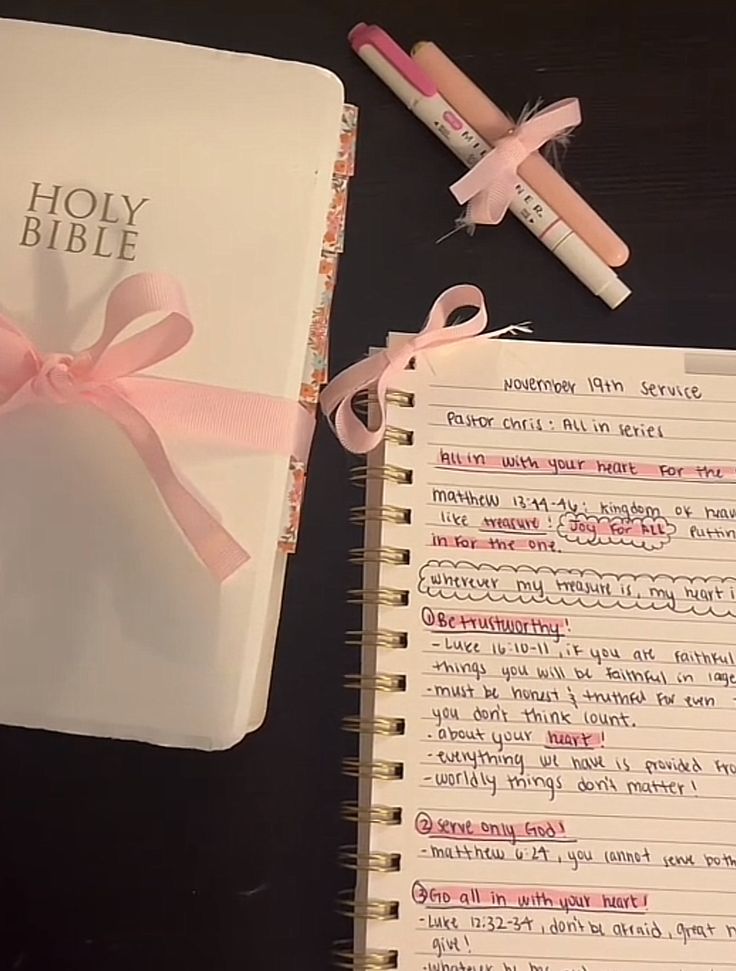 HOLY
BIBLE
MILDLINER.
November 19th service
Pastor Chris: All in series
All in with your heart For the
matthew 13:44-46: kingdom of heav
like treasure! Joy For All Puttin
in For the one.
wherever my treasure is, my heart i
① Be trustworthy!
- Luke 16:10-11, if you are faithful
things you will be faithful in lage
- must be honest & truthful for even
you don't think count.
- about your heart!
- everything we have is provided fro
- worldly things don't matter!
② serve only God!
- matthew 6:24, you cannot serve both
③ Go all in with your heart!
- Luke 12:32-34, don't be afraid, great
give!
- whatever